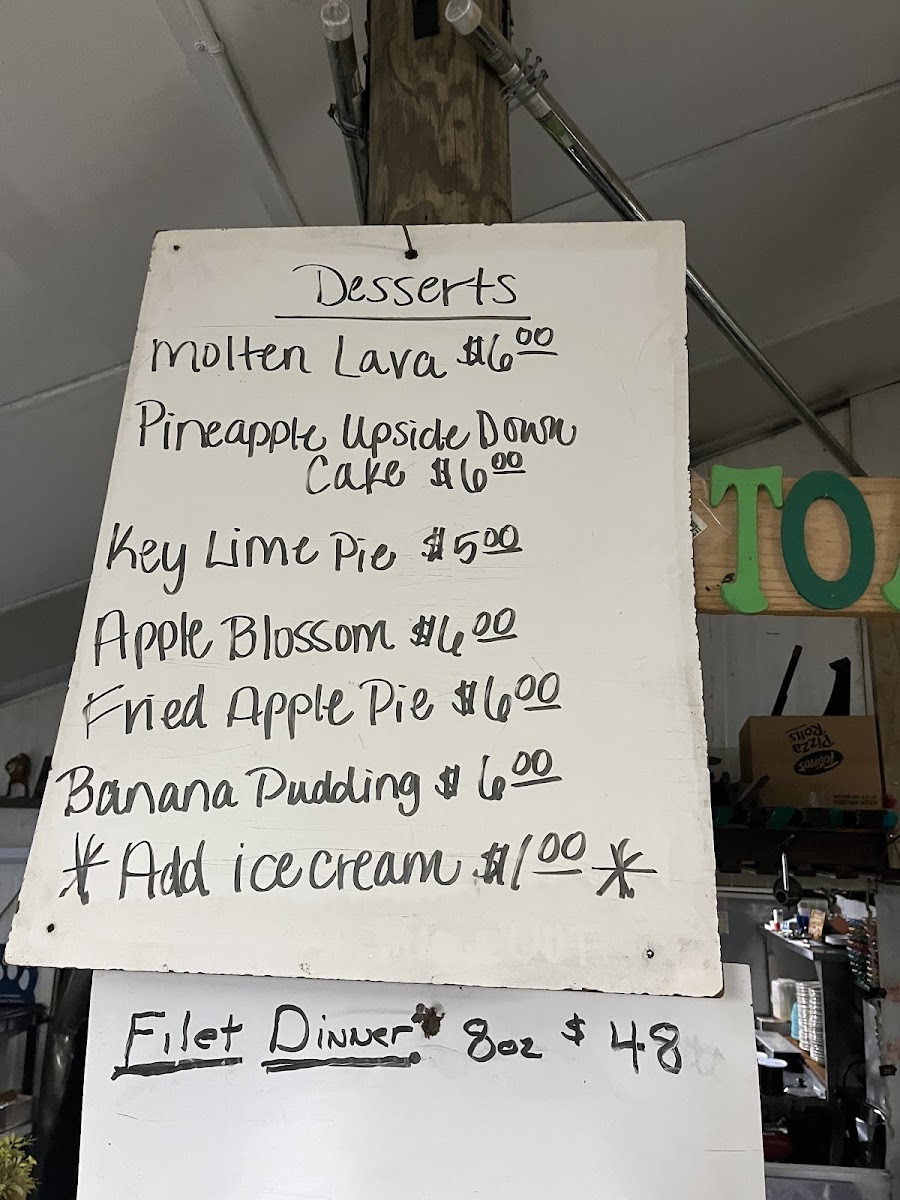 Desserts
Molten Lava $6.00
Pineapple Upside Down
Cake $6.00
Key Lime Pie $5.00
Apple Blossom $6.00
Fried Apple Pie $6.00
Banana Pudding $6.00
* Add ice cream $1.00 *
Filet Dinner 8oz $48
TO
Totino's
Pizza
Rolls